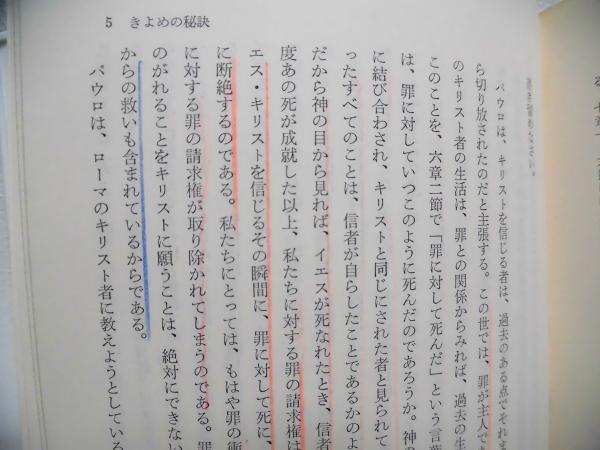 5 きよめの秘訣
パウロは、キリストを信じる者は、過去のある点でそれま
ら切り放されたのだと主張する。この世では、罪が主人でき
のキリスト者の生活は、罪との関係からみれば、過去の生
このことを、六章二節で「罪に対して死んだ」という言葉
は、罪に対していつこのように死んだのであろうか。神の
に結び合わされ、キリストと同じにされた者と見られて
ったすべてのことは、信者が自らしたことであるかのよ
だから神の目から見れば、イエスが死なれたとき、信者
度あの死が成就した以上、私たちに対する罪の請求権は
エス・キリストを信じるその瞬間に、罪に対して死に、
に断絶するのである。私たちにとっては、もはや罪の衝
に対する罪の請求権が取り除かれてしまうのである。罪
のがれることをキリストに願うことは、絶対にできない
からの救いも含まれているからである。
パウロは、ローマのキリスト者に教えようとしている